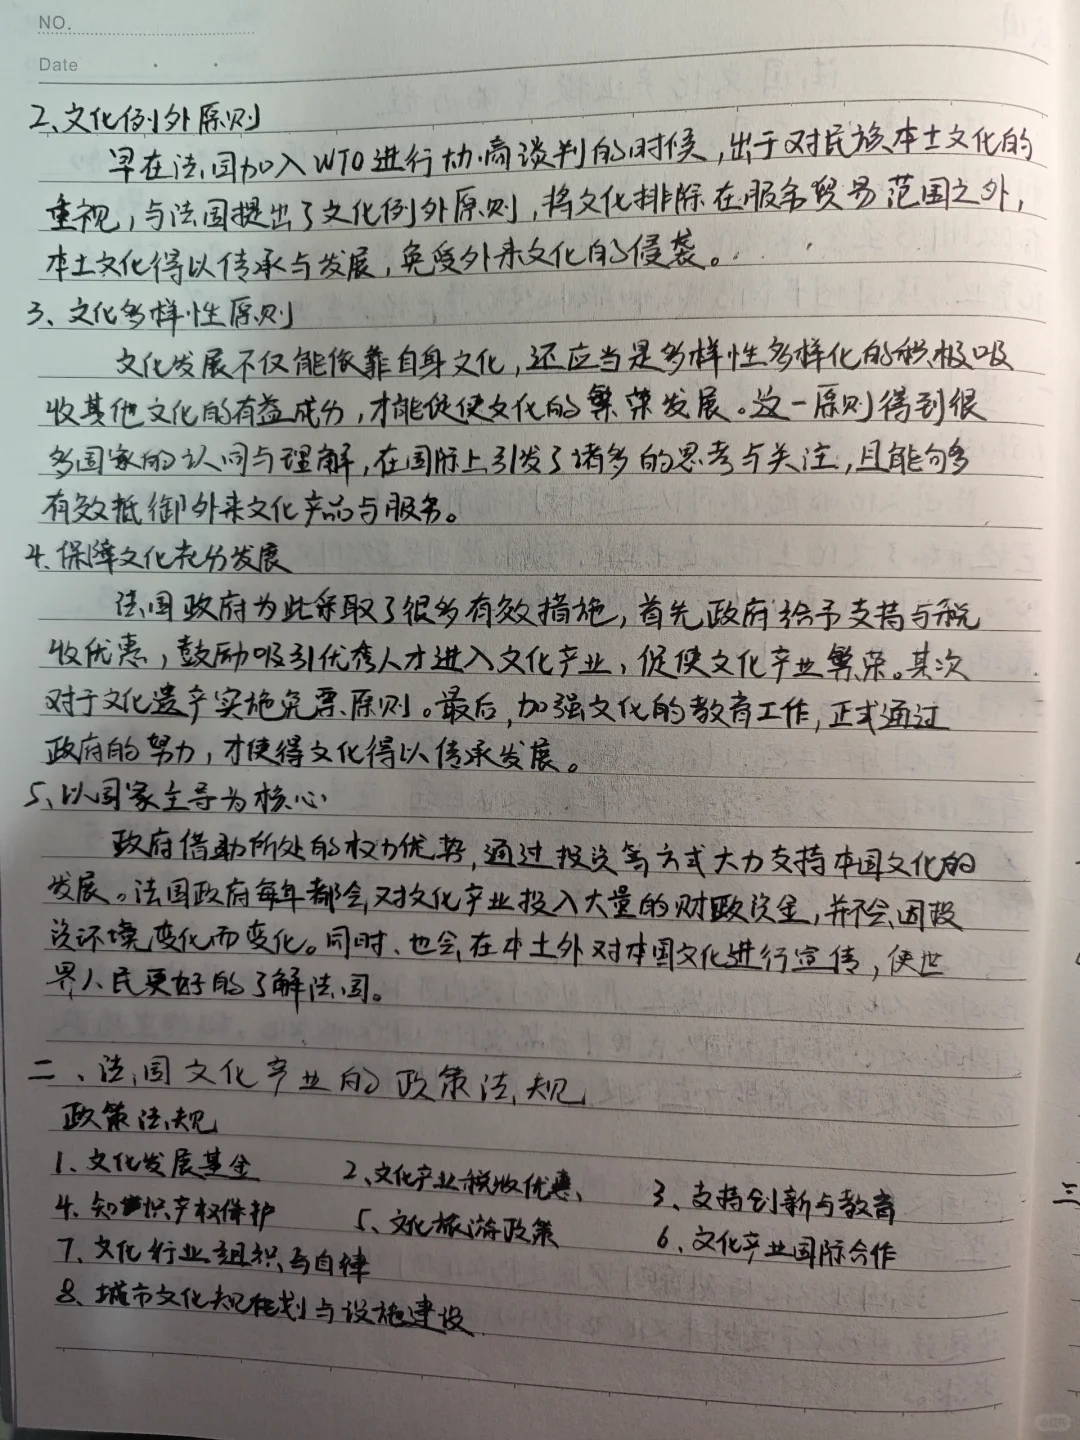 NO.
Date
2、文化例外原则
早在法国加入WTO进行协商谈判的时候，出于对民族本土文化的
重视，与法国提出了文化例外原则，将文化排除在服务贸易范围之外，
本土文化得以传承与发展，免受外来文化的侵袭。
3、文化多样性原则
文化发展不仅能依靠自身文化，还应当是多样性多样化的积极吸
收其他文化的有益成分，才能促使文化的繁荣发展。这一原则得到很
多国家的认同与理解，在国际上引发了诸多的思考与关注，且能够多
有效抵御外来文化产品与服务。
4、保障文化充分发展
法国政府为此采取了很多有效措施，首先政府给予支持与税
收优惠，鼓励吸引优秀人才进入文化产业，促使文化产业繁荣。其次
对于文化遗产实施免票原则。最后，加强文化的教育工作，正式通过
政府的努力，才使得文化得以传承发展。
5、以国家主导为核心
政府借助所处的权力优势，通过投资等方式大力支持本国文化的
发展。法国政府每年都会对文化产业投入大量的财政资金，并不会因投
资环境变化而变化。同时、也会在本土外对本国文化进行宣传，使世
界人民更好的了解法国。
二、法国文化产业的政策法规
政策法规
1、文化发展基金 2、文化产业税收优惠、 3、支持创新与教育
4、知识产权保护 5、文化旅游政策 6、文化产业国际合作
7、文化行业组织与自律
8、城市文化规划与设施建设
三